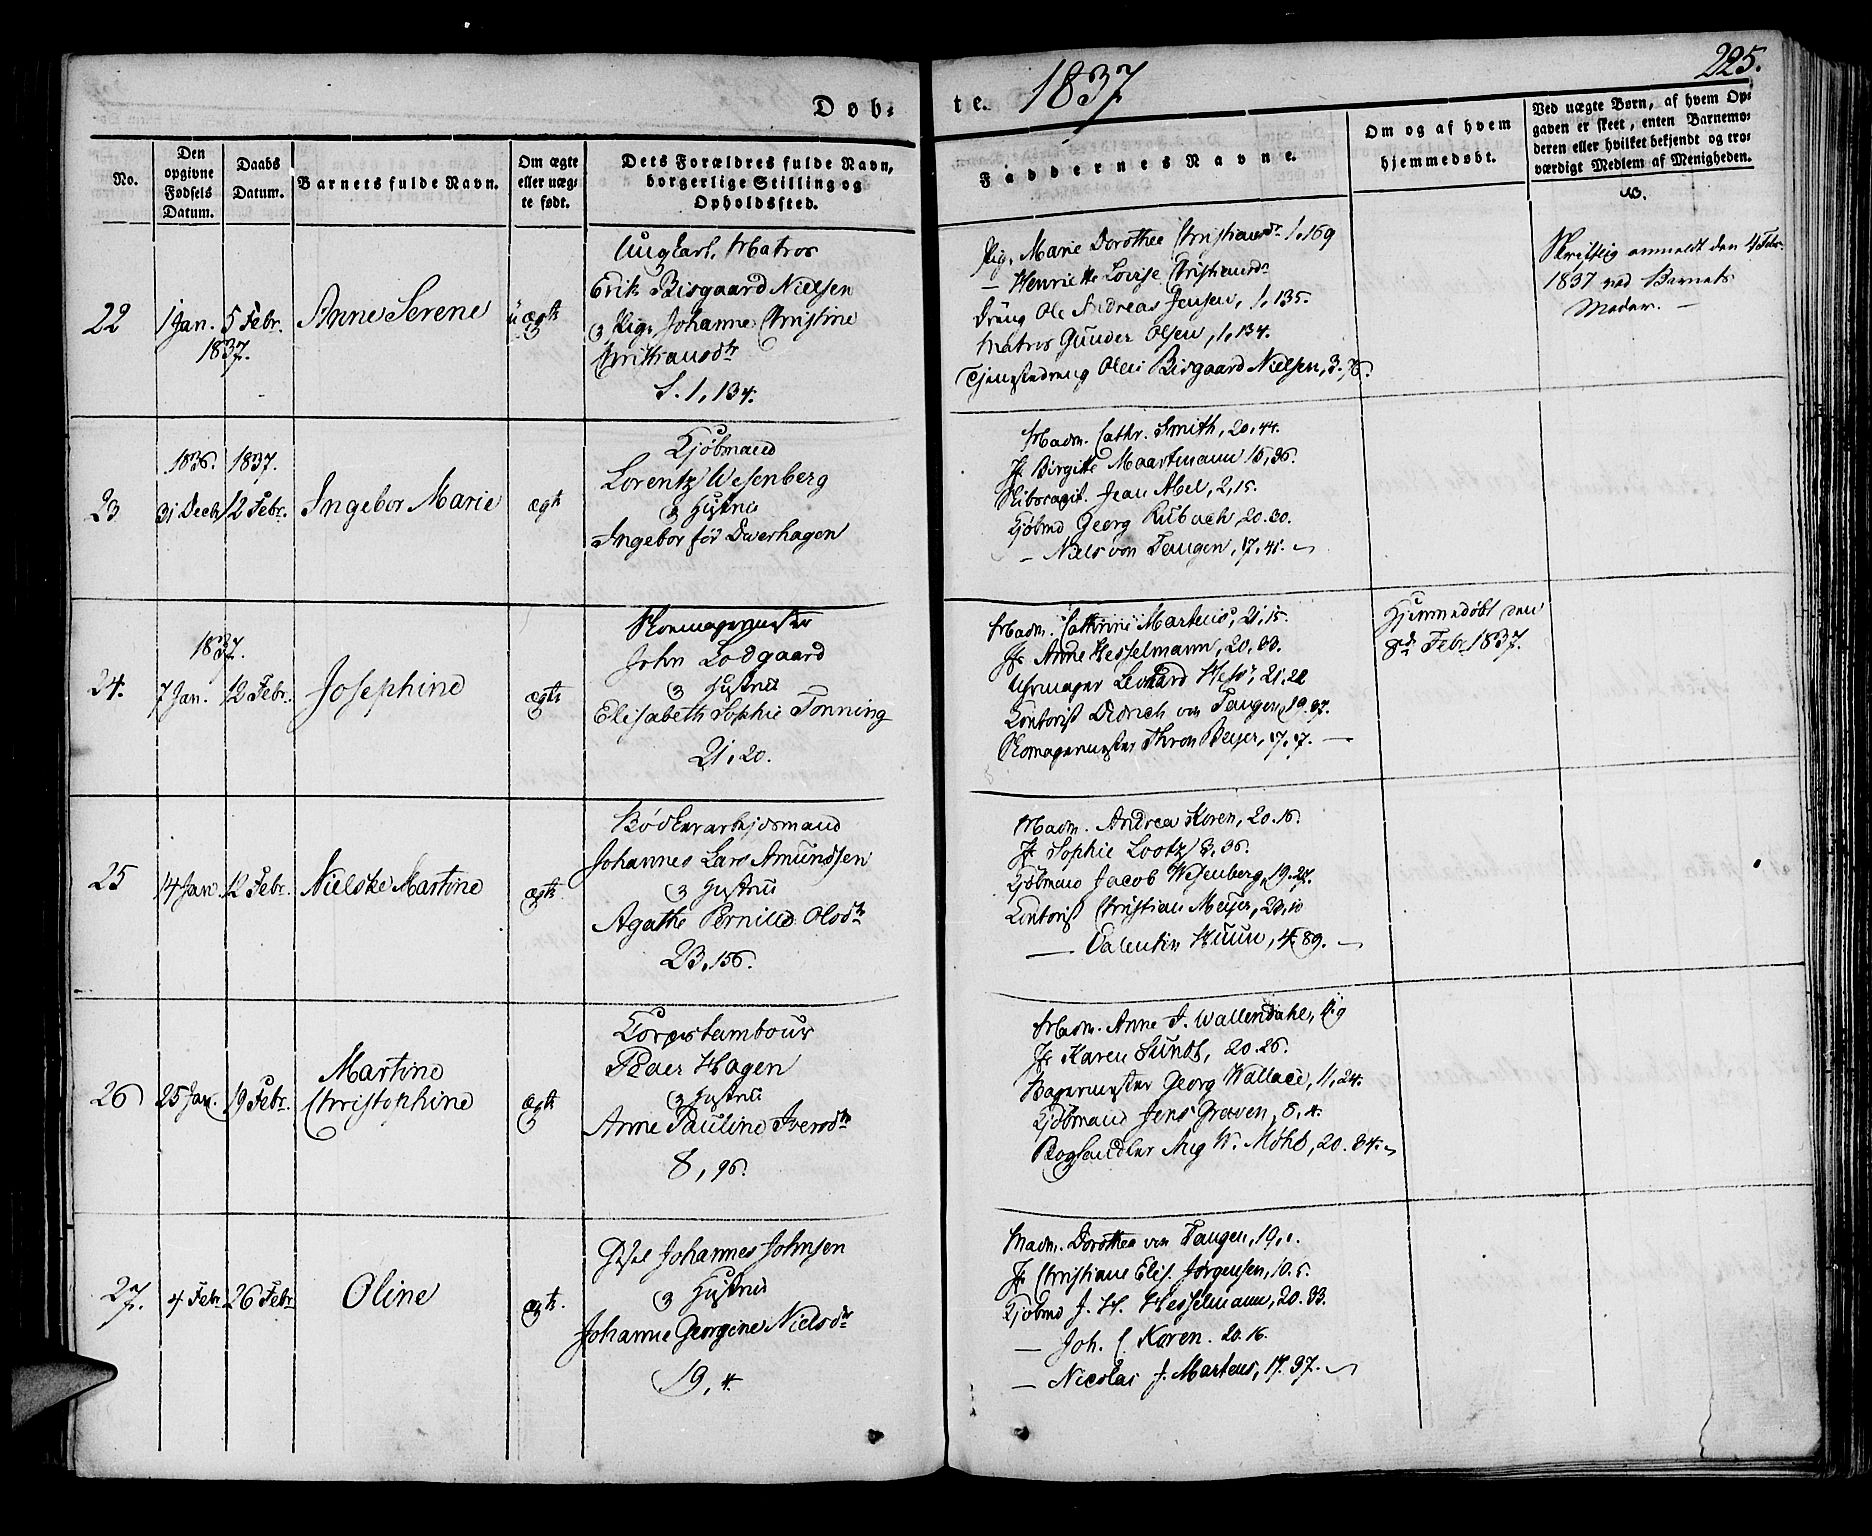 225.
Døb- te. 1837
No.
Den opgivne Fødsels Datum.
Daabs Datum.
Barnets fulde Navn.
Om ægte eller uægte født.
Dets Forældres fulde Navn, borgerlige Stilling og Opholdssted.
Faddernes Navne.
Om og af hvem hjemmedøbt.
Ved uægte Børn, af hvem Opgaven er skeet, enten Barnemoderen eller hvilket bekjendt og troværdigt Medlem af Menigheden.
22
1 Jan. 5 Febr.
1837.
Anne Serene
uægte
Ungkarl, Matros
Erik Bisgaard Nielsen
& Pige Johanne Christine
Christiansdtr
S. 1, 134.
Pig. Marie Dorothea Christiansdr 1, 169
— Henriette Lovise Christiansdr
Dreng Ole Andreas Jensen, 1, 135.
Matros Gunder Olsen, 1, 134.
Tjenestedreng Oleus Bisgaard Nielsen, 3.
Skriftlig anmeldt den 4 Febr.
1837 ved Barnets
Moder. —
23
1836. 1837.
31 Decb 12 Febr.
Ingebor Marie
ægte
Kjøbmand
Lorentz Wesenberg
& Hustrue
Ingebor før Dverhagen
Madm. Cathr. Smith, 20, 44.
Jf Birgitte Maartmann 15, 36.
Skibscapit. Jean Abel, 2, 15.
Kjøbmd Georg Rubach, 20. 30.
— Niels von Tangen, 17, 41.
24.
1837.
7 Jan. 12 Febr.
Josephine
ægte
Skomagermester
John Lodgaard
& Hustrue
Elisabeth Sophie Tonning
21, 20.
Madm. Cathrine Martens, 21, 15.
Jfr Anne Hesselmann, 20, 33.
Uhrmager Leonard Hess, 21, 21
Contorist Didrich von Tangen, 19. 37.
Skomagermester Thron Beyer, 17, 17. —
Hjemmedøbt den
8de Febr 1837.
25
14 Jan 12 Febr.
Nielske Martine
ægte
Bødkerarbejdsmand
Johannes Lars Amundsen
& Hustrue
Agathe Pernille Olsdtr
23, 156.
Madm. Andrea Koren, 20. 16.
Jf Sophie Lootz 3, 36.
Kjøbmand Jacob Wesenberg, 19. 27.
Contorist Christian Meyer, 23, 10
— Valentin Kuun, 4, 89. —
26
25 Jan. 19 Febr.
Martine
Christophine
ægte
Corpstambour
Peder Hagen
& Hustrue
Anne Pauline Iversdtr
8, 96.
Madm. Anne J. Wallendahl,
Jf Karen Sundt, 20. 26.
Bagermester Georg Wallace, 11, 24.
Kjøbmand Jens Greven, 5, 4.
Boghandler Aug W. Møhb, 20. 34.
27.
4 Febr 26 Febr
Oline
ægte.
Johannes Johnsen
& Hustrue
Johanne Georgine Nielsdr
19, 4.
Madm. Dorothea von Tangen, 19, 1.
Jf Christiane Elis. Jørgensen, 10. 5.
Kjøbmd J. H. Hesselmann, 20. 33.
— Joh. C. Koren. 20. 16.
— Nicolai J. Martens, 17. 37.